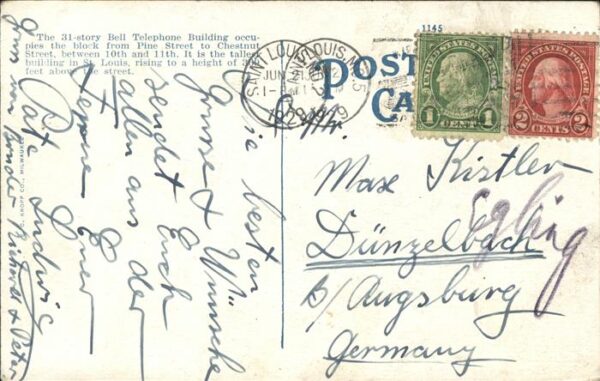 The 31-story Bell Telephone Building occu-
pies the block from Pine Street to Chestnut
Street, between 10th and 11th. It is the tallest
building in St. Louis, rising to a height of
feet above the street.
1145
POST
CA
SAINT LOUIS, MO.
JUN
1929
UNITED STATES POSTAGE
1 CENT 1
2 CENTS 2
Die besten
Grüsse & Wünsche
sendet Euch
allen aus der
Ferne Euer
Pate Ludwig
Max Kistler
Egling
Dünzelbach
b/Augsburg
Germany
C. KROPP CO., MILWAUKEE